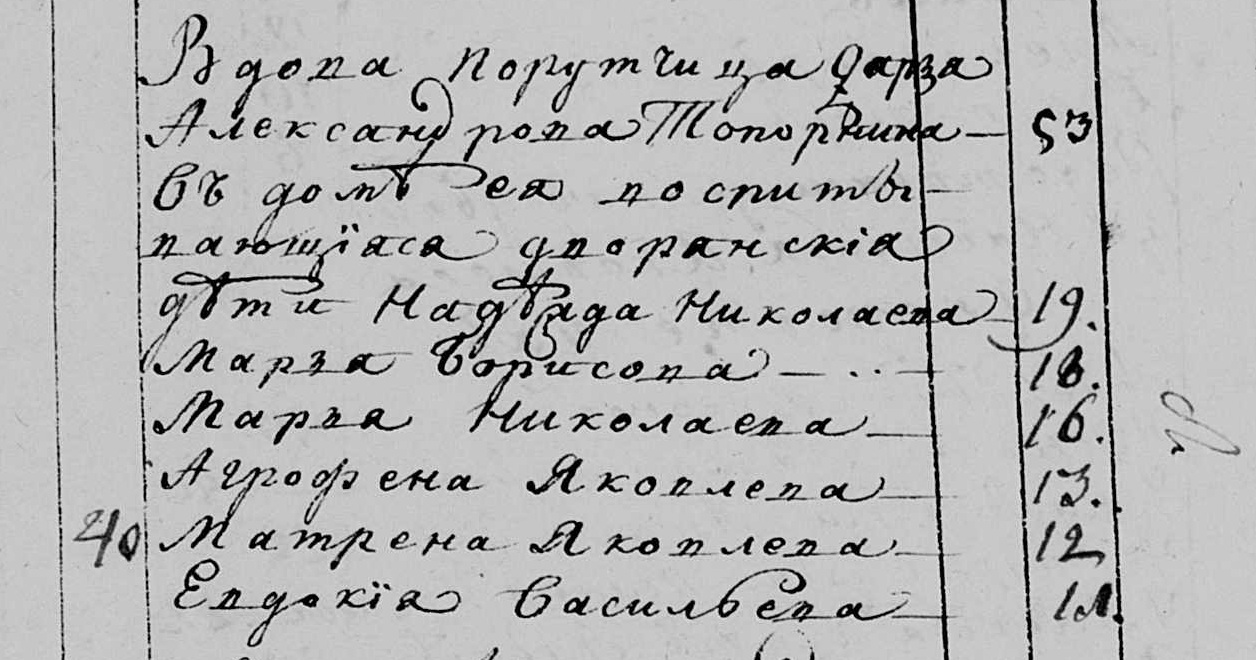 Вдова порутчица Дарья
Александрова Топорнина — 53
Въ домѣ ея воспиты-
вающіяся дворянскія
дѣти Надѣжда Николаева — 19.
Марья Борисова — .. — 18.
Марья Николаева — 16.
Агрофена Яковлева — 13.
40 Матрена Яковлева — 12
Евдокія Васильева —